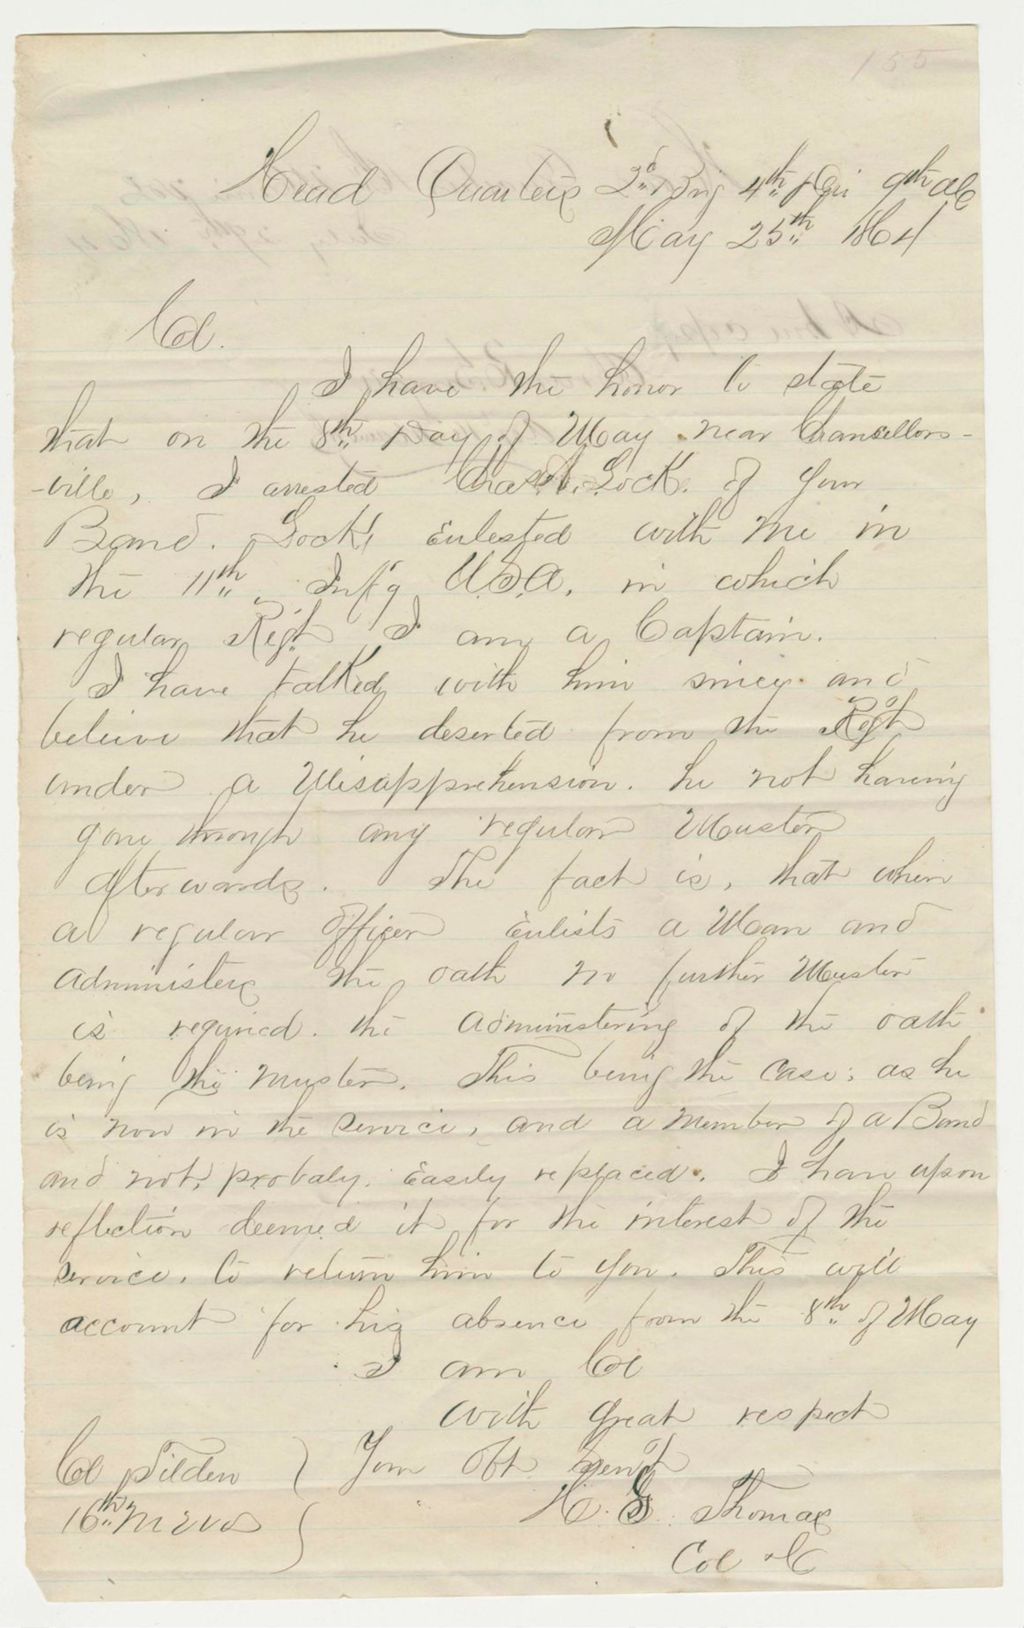 155
Head Quarters 2d Brig 4th Div 9th AC
May 25th 1864
Col.
I have the honor to state
that on the 8th Day of May near Chancellors-
-ville, I arrested Chas. A. Lock. of your
Band. Lock enlested with me in
the 11th Inf'y U.S.A. in which
regular Regt I am a Captain.
I have talked with him since and
believe that he deserted from the Regt
under a Misapprehension. he not having
gone through any regular Muster
afterwards. The fact is, that when
a regular officer Enlists a Man and
administers the oath no further Muster
is required. the administering of the oath
being the muster. This being the case, as he
is now in the service, and a member of a Band
and not, probaly. Easily replaced. I have upon
reflection deemed it for the interest of the
service, to return him to you. This will
account for his absence from the 8th of May
I am Col
with great respect
Your Obt Serv't
H. G. Thomas
Col &C
Col Tilden
16th Me Vols